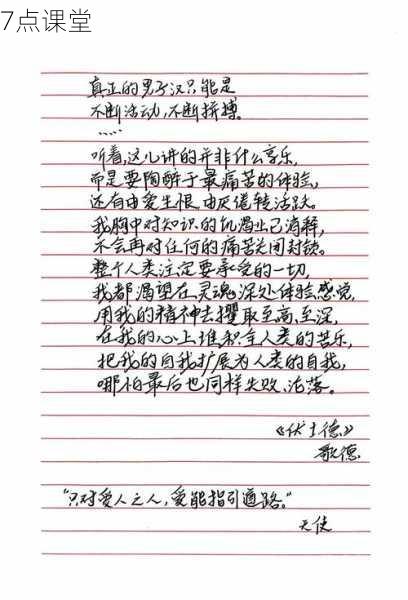 7点课堂
真正的男子汉只能是
不断活动,不断拼搏。
……
听着,这儿讲的并非什么享乐,
而是要陶醉于最痛苦的体验,
还有由爱生恨,由厌倦转活跃。
我胸中对知识的饥渴业已消释,
不会再对任何的痛苦关闭封锁。
整个人类注定要承受的一切,
我都渴望在灵魂深处体验感觉,
用我的精神去攫取至高,至深,
在我的心上堆积全人类的苦乐,
把我的自我扩展为人类的自我,
哪怕最后也同样失败、沦落。
《伏士德》
歌德.
“只对爱人之人,爱能指引道路。”
天使